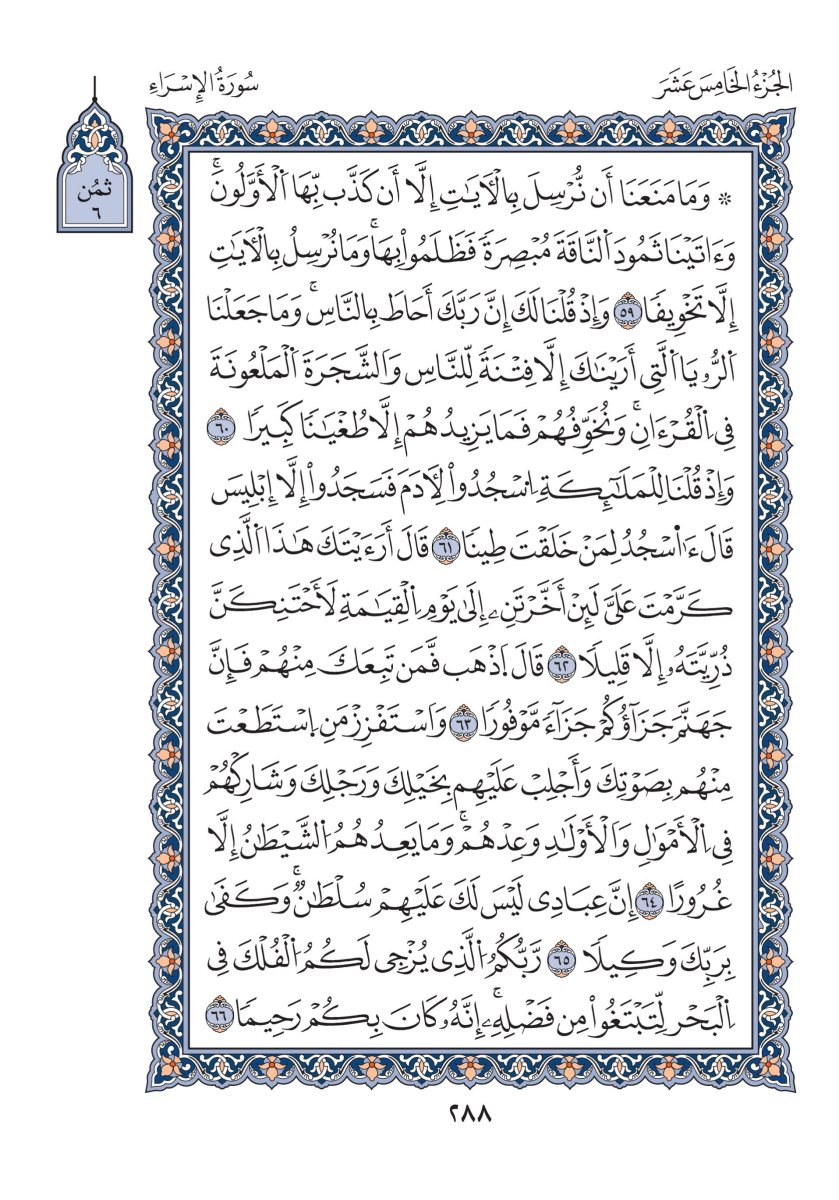 الجُزْءُ الخَامِسَ عَشَرَ
سُورَةُ الإِسْرَاءِ
ثمُن
٦
۞ وَمَا مَنَعَنَا أَن نُّرْسِلَ بِالْأٓيَٰتِ إِلَّا أَن كَذَّب بِّهَا اَ۬لْأَوَّلُونَۚ
وَءَاتَيْنَا ثَمُودَ اَ۬لنَّاقَةَ مُبْصِرَةٗ فَظَلَمُواْ بِهَاۚ وَمَا نُرْسِلُ بِالْأٓيَٰتِ
إِلَّا تَخْوِيفٗا ٥٩ وَإِذْ قُلْنَا لَكَ إِنَّ رَبَّكَ أَحَاطَ بِالنَّاسِۚ وَمَا جَعَلْنَا
اَ۬لرُّۥيَا اَ۬لَّتِي أَرَيْنَٰكَ إِلَّا فِتْنَةٗ لِّلنَّاسِ وَالشَّجَرَةَ اَ۬لْمَلْعُونَةَ
فِي اِ۬لْقُرْءَانِۚ وَنُخَوِّفُهُمْ فَمَا يَزِيدُهُمْ إِلَّا طُغْيَٰنٗا كَبِيرٗا ٦٠
وَإِذْ قُلْنَا لِلْمَلَٰٓئِكَةِ اِ۟سْجُدُواْ لِأٓدَمَ فَسَجَدُواْ إِلَّا إِبْلِيسَ
قَالَ ءَا۬سْجُدُ لِمَنْ خَلَقْتَ طِينٗا ٦١ قَالَ أَرَءَيْتَكَ هَٰذَا اَ۬لَّذِي
كَرَّمْتَ عَلَيَّ لَئِنْ أَخَّرْتَنِۦ إِلَىٰ يَوْمِ اِ۬لْقِيَٰمَةِ لَأَحْتَنِكَنَّ
ذُرِّيَّتَهُۥ إِلَّا قَلِيلٗا ٦٢ قَالَ اَ۪ذْهَب فَّمَن تَبِعَكَ مِنْهُمْ فَإِنَّ
جَهَنَّمَ جَزَآؤُكُمْ جَزَآءٗ مَّوْفُورٗا ٦٣ وَاسْتَفْزِزْ مَنِ اِ۪سْتَطَعْتَ
مِنْهُم بِصَوْتِكَ وَأَجْلِبْ عَلَيْهِم بِخَيْلِكَ وَرَجْلِكَ وَشَارِكْهُمْ
فِي اِ۬لْأَمْوَٰلِ وَالْأَوْلَٰدِ وَعِدْهُمْۚ وَمَا يَعِدُهُمُ اُ۬لشَّيْطَٰنُ إِلَّا
غُرُورًا ٦٤ إِنَّ عِبَادِي لَيْسَ لَكَ عَلَيْهِمْ سُلْطَٰنٞۚ وَكَفَىٰ
بِرَبِّكَ وَكِيلٗا ٦٥ رَّبُّكُمُ اُ۬لَّذِي يُزْجِي لَكُمُ اُ۬لْفُلْكَ فِي
اِ۬لْبَحْر لِّتَبْتَغُواْ مِن فَضْلِهِۦۚ إِنَّهُۥ كَانَ بِكُمْ رَحِيمٗا ٦٦
٢٨٨